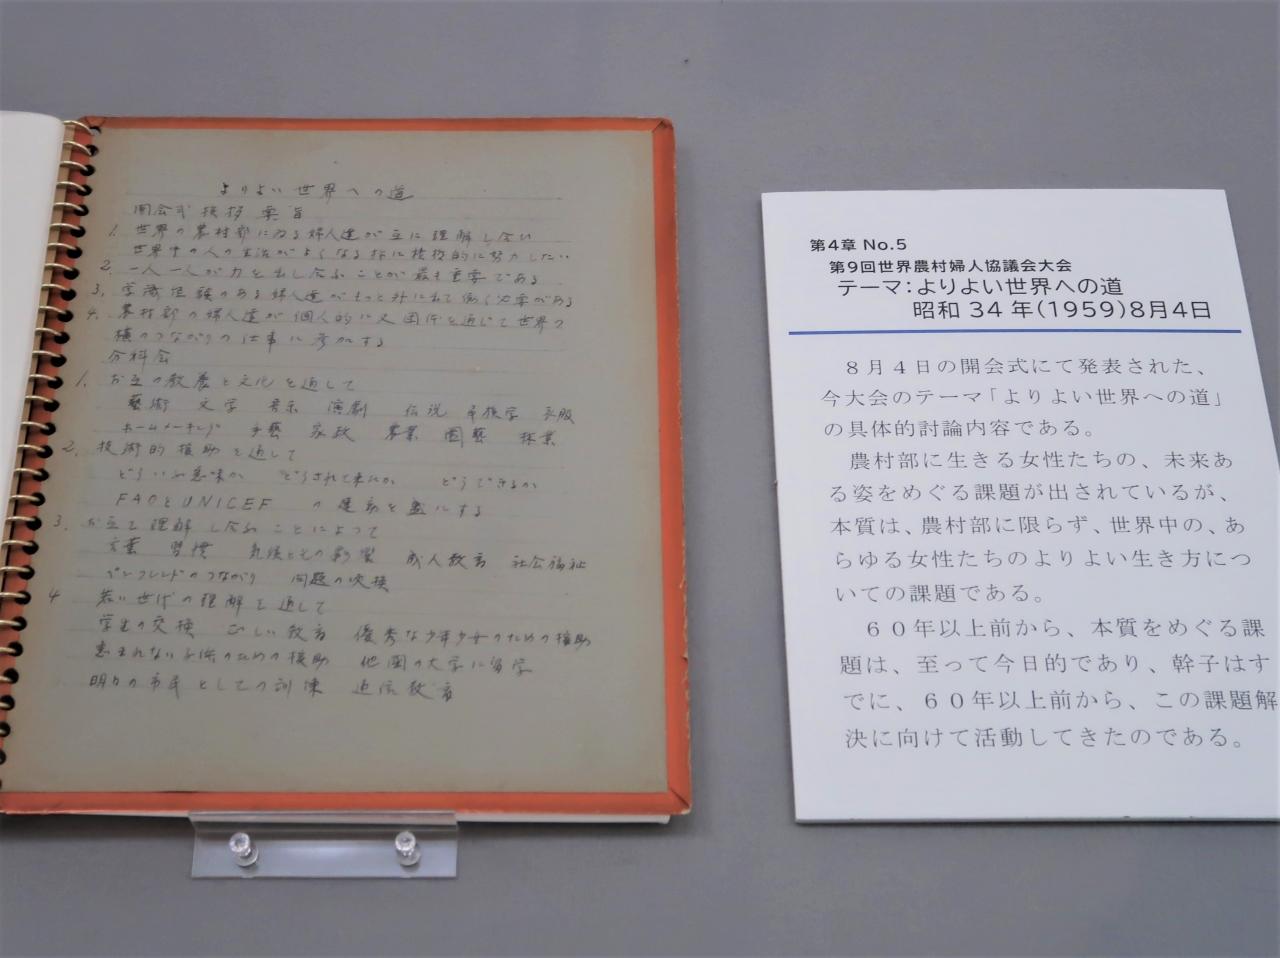 よりよい世界への道
開会式 挨拶 要旨
1. 世界の農村部に居る婦人達が互に理解し合い
世界中の人の生活がよくなる様に積極的に努力したい
2. 一人一人が力を出し合ふことが最も重要である
3. 学識経験のある婦人達がもっと外に出て働く必要がある
4. 農村部の婦人達が個人的に又団体を通じて世界の
横のつながりの仕事に参加する
分科会
1. お互の教養と文化を通して
藝術 文学 音楽 演劇 伝説
ホームメーキング 手藝 家政 農業 園藝 林業
2. 技術的援助を通して
どういふ意味か どうされて来たか どうできるか
FAOとUNICEF の運動を盛にする
3. お互を理解し合ふことによって
言葉 習慣 気候とその影響 成人教育 社会福祉
ペンフレンドのつながり 問題の交換
4 若い世代の理解を通して
学生の交換 正しい教育 優秀な少年少女のための援助
恵まれない子供のための援助 他国の大学に留学
明日の市民としての訓練 通信教育
第4章 No.5
第9回世界農村婦人協議会大会
テーマ：よりよい世界への道
昭和 34 年(1959)8月4日
８月４日の開会式にて発表された、
今大会のテーマ「よりよい世界への道」
の具体的討論内容である。
農村部に生きる女性たちの、未来あ
る姿をめぐる課題が出されているが、
本質は、農村部に限らず、世界中の、あ
らゆる女性たちのよりよい生き方につ
いての課題である。
６０年以上前から、本質をめぐる課
題は、至って今日的であり、幹子はす
でに、６０年以上前から、この課題解
決に向けて活動してきたのである。